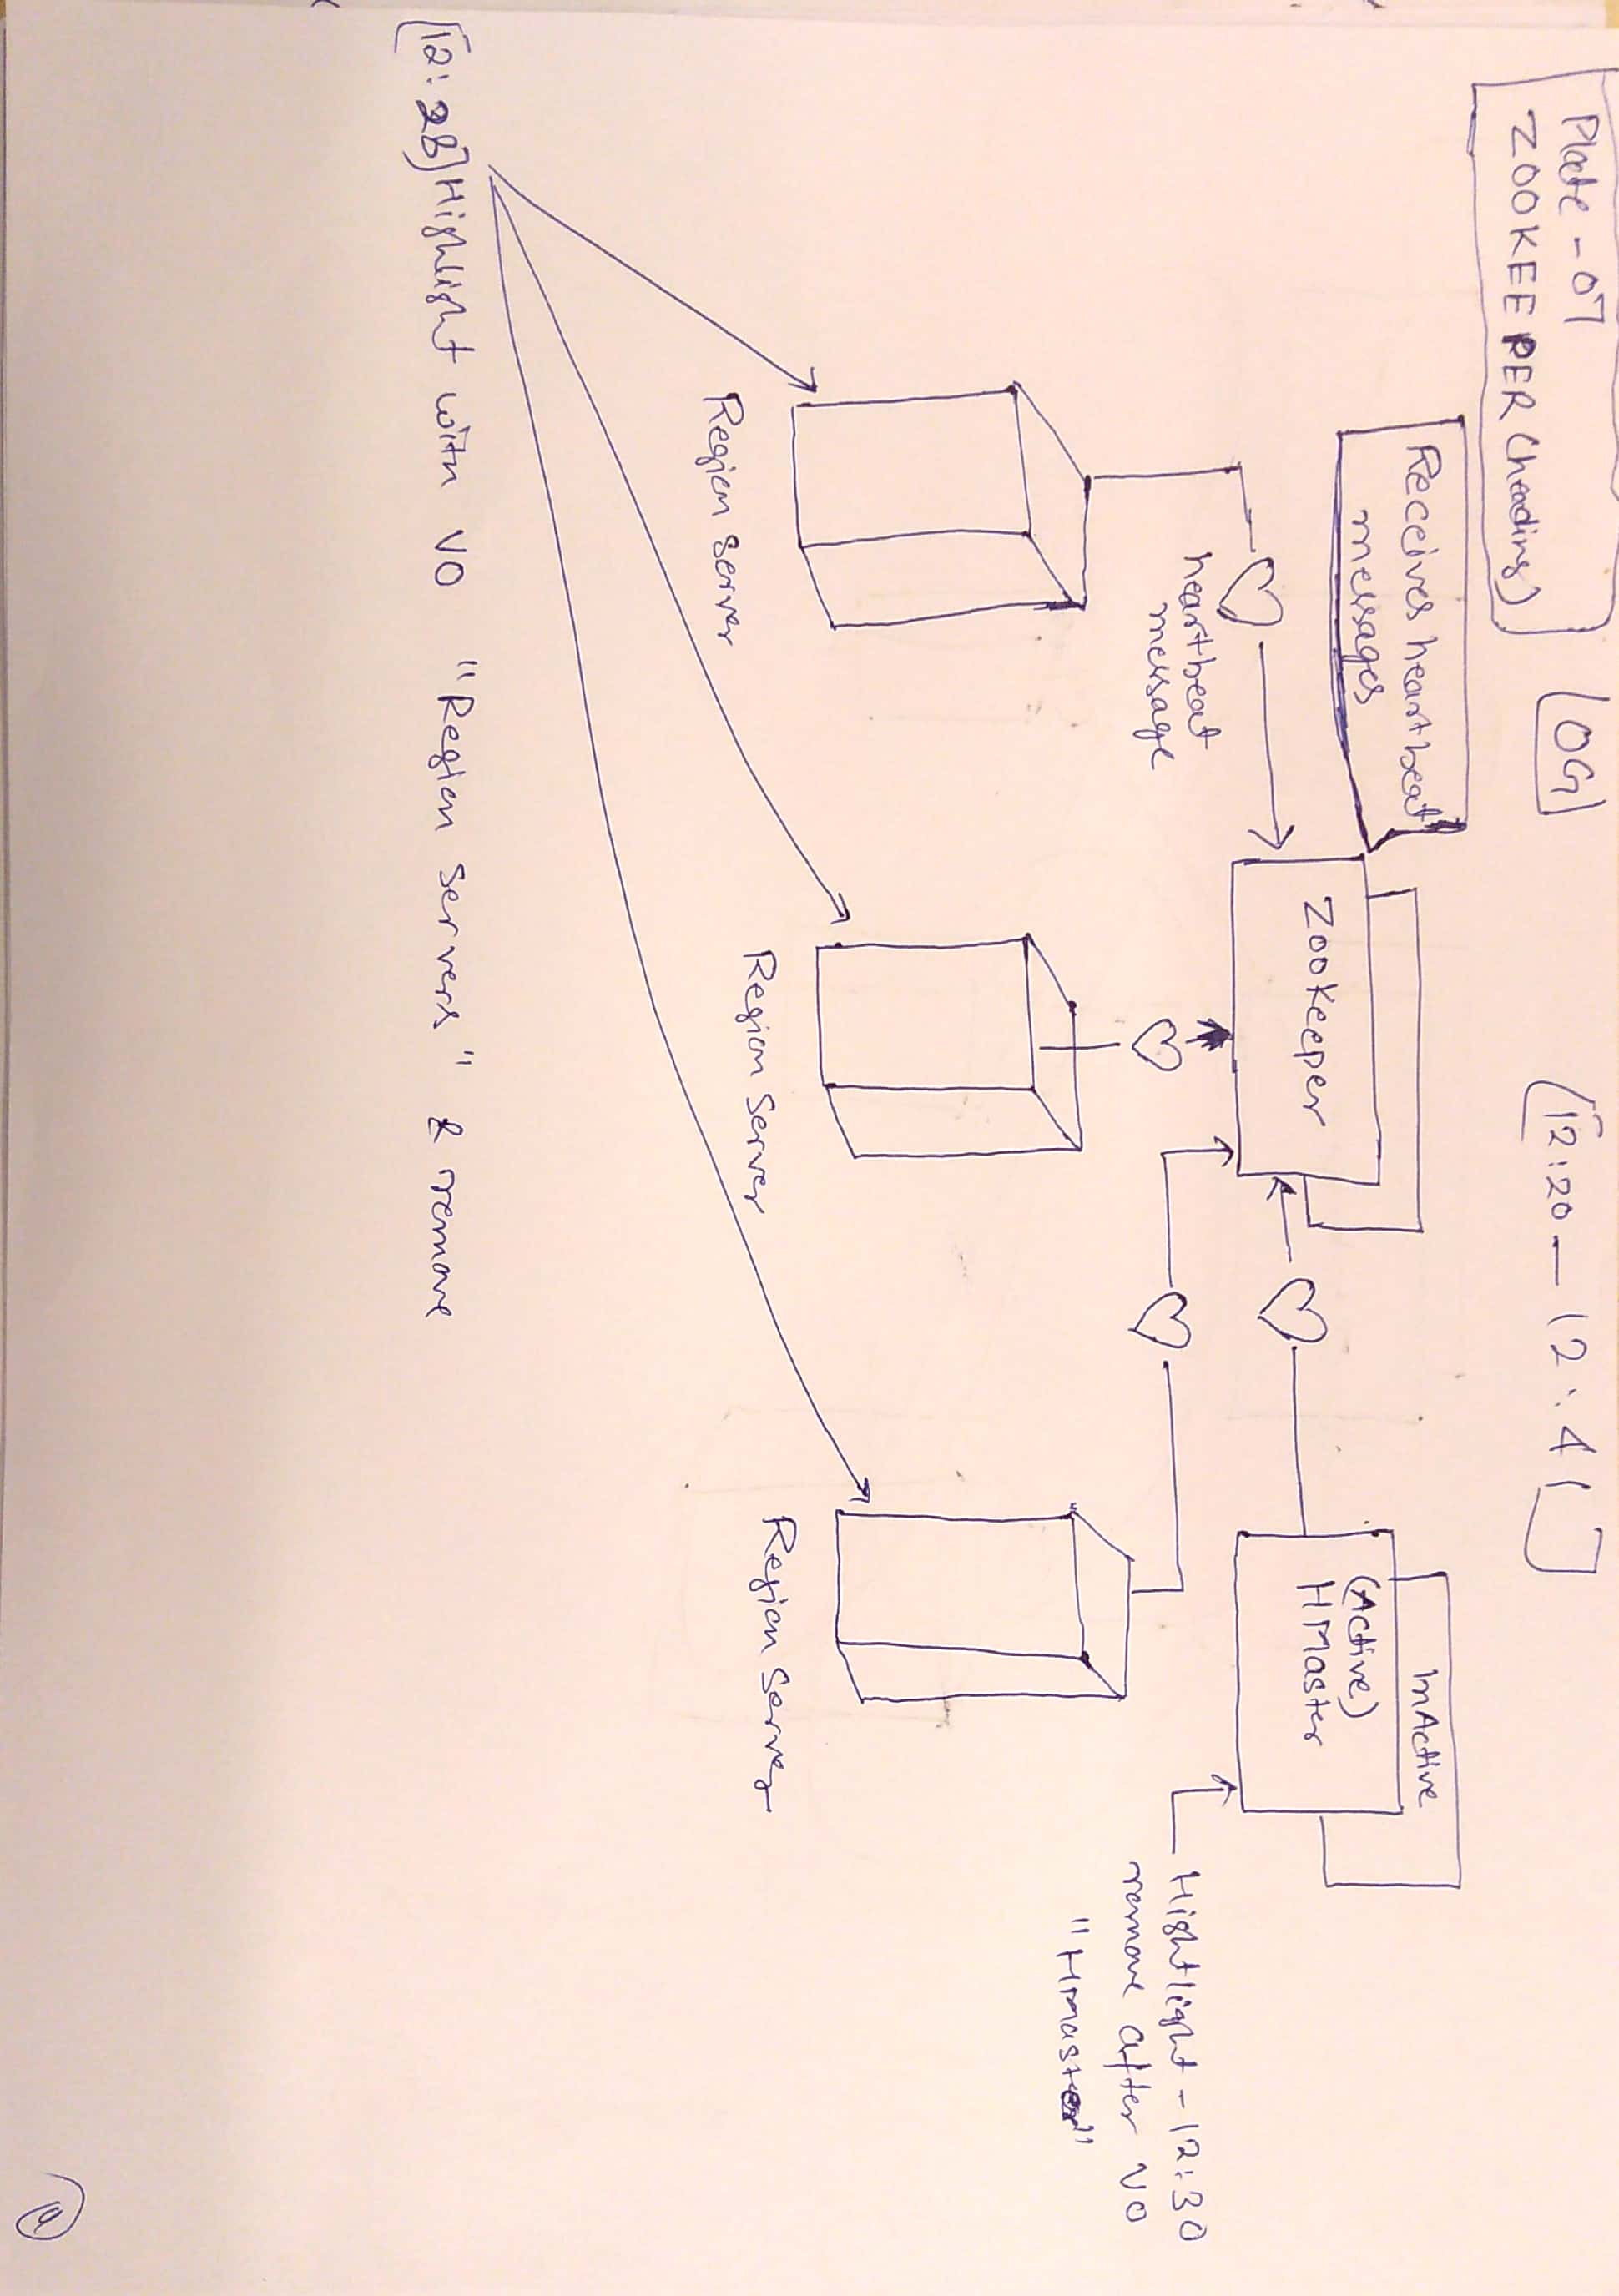 Plate - 07
ZOOKEEPER (heading)
[OG]
[12:20 - 12:41]
Receives heartbeat
messages
ZooKeeper
InActive
(Active)
HMaster
heartbeat
message
Hightlight - 12:30
remove after VO
"HMaster"
Region Server
Region Server
Region Server
[12:28] Highlight with VO "Region Servers" & remove